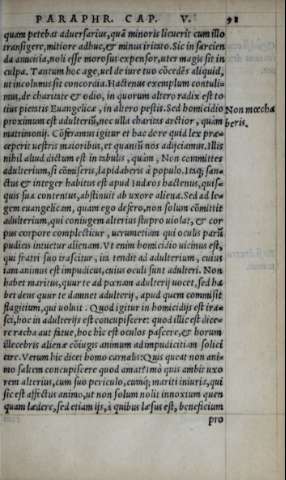 PARAPHR. CAP. V. 98
quam petebat aduersarius, quā minoris licuerit cum illo
transigere, mitiore adhuc, & minus iniusto. Sic in sarcien
da amicitia, noli esse morosus expensor, uter magis sit in
culpa. Tantum hoc age, uel de iure tuo cōcedēs aliquid,
ut incolumis sit concordia. Hactenus exemplum contuli=
mus, de charitate & odio, in quorum altero radix est to
tius pietatis Euangelicæ, in altero pestis. Sed homicidio
Non mœcha
beris.
proximum est adulteriū, nec ulla charitas arctior, quàm
matrimonij. Cōferamus igitur et hac de re quid lex præ=
ceperit uestris maioribus, et quantū nos adijciamus. Illis
nihil aliud dictum est in tabulis, quàm, Non committes
adulterium, si cōmiseris, lapidaberis à populo. Itaq; san=
ctus & integer habitus est apud Iudæos hactenus, quisq́=
quis sua contentus, abstinuit ab uxore aliena. Sed ad le=
gem euangelicam, quam ego defero, non solum cōmittit
adulterium, qui coniugem alterius stupro uiolat, & cor
pus corpore complectitur, uerumetiam qui oculis parū
pudicis intuetur alienam. Vt enim homicidio uicinus est,
qui fratri suo irascitur, ita tendit ad adulterium, cuius
iam animus est impudicus, cuius oculi sunt adulteri. Non
habet maritus, quur te ad pœnam adulterij uocet, sed ha
bet deus quur te damnet adulterij, apud quem commisit
flagitium, qui uoluit. Quod igitur in homicidijs est ira=
sci, hoc in adulterijs est concupiscere: quod illic est dice=
re racha aut fatue, hoc hic est oculos pascere, & horum
illecebris alienæ cōiugis animum ad impudicitiam solici
tare. Verum hic dicet homo carnalis: Quis queat non ani=
mo saltem concupiscere quod amat? imò quis ambit uxo
rem alterius, cum suo periculo, cumq́; mariti iniuria, qui
sic est affectus animo, ut non solum nolit innoxium quen
quam lædere, sed etiam ijs, à quibus læsus est, beneficium
pro